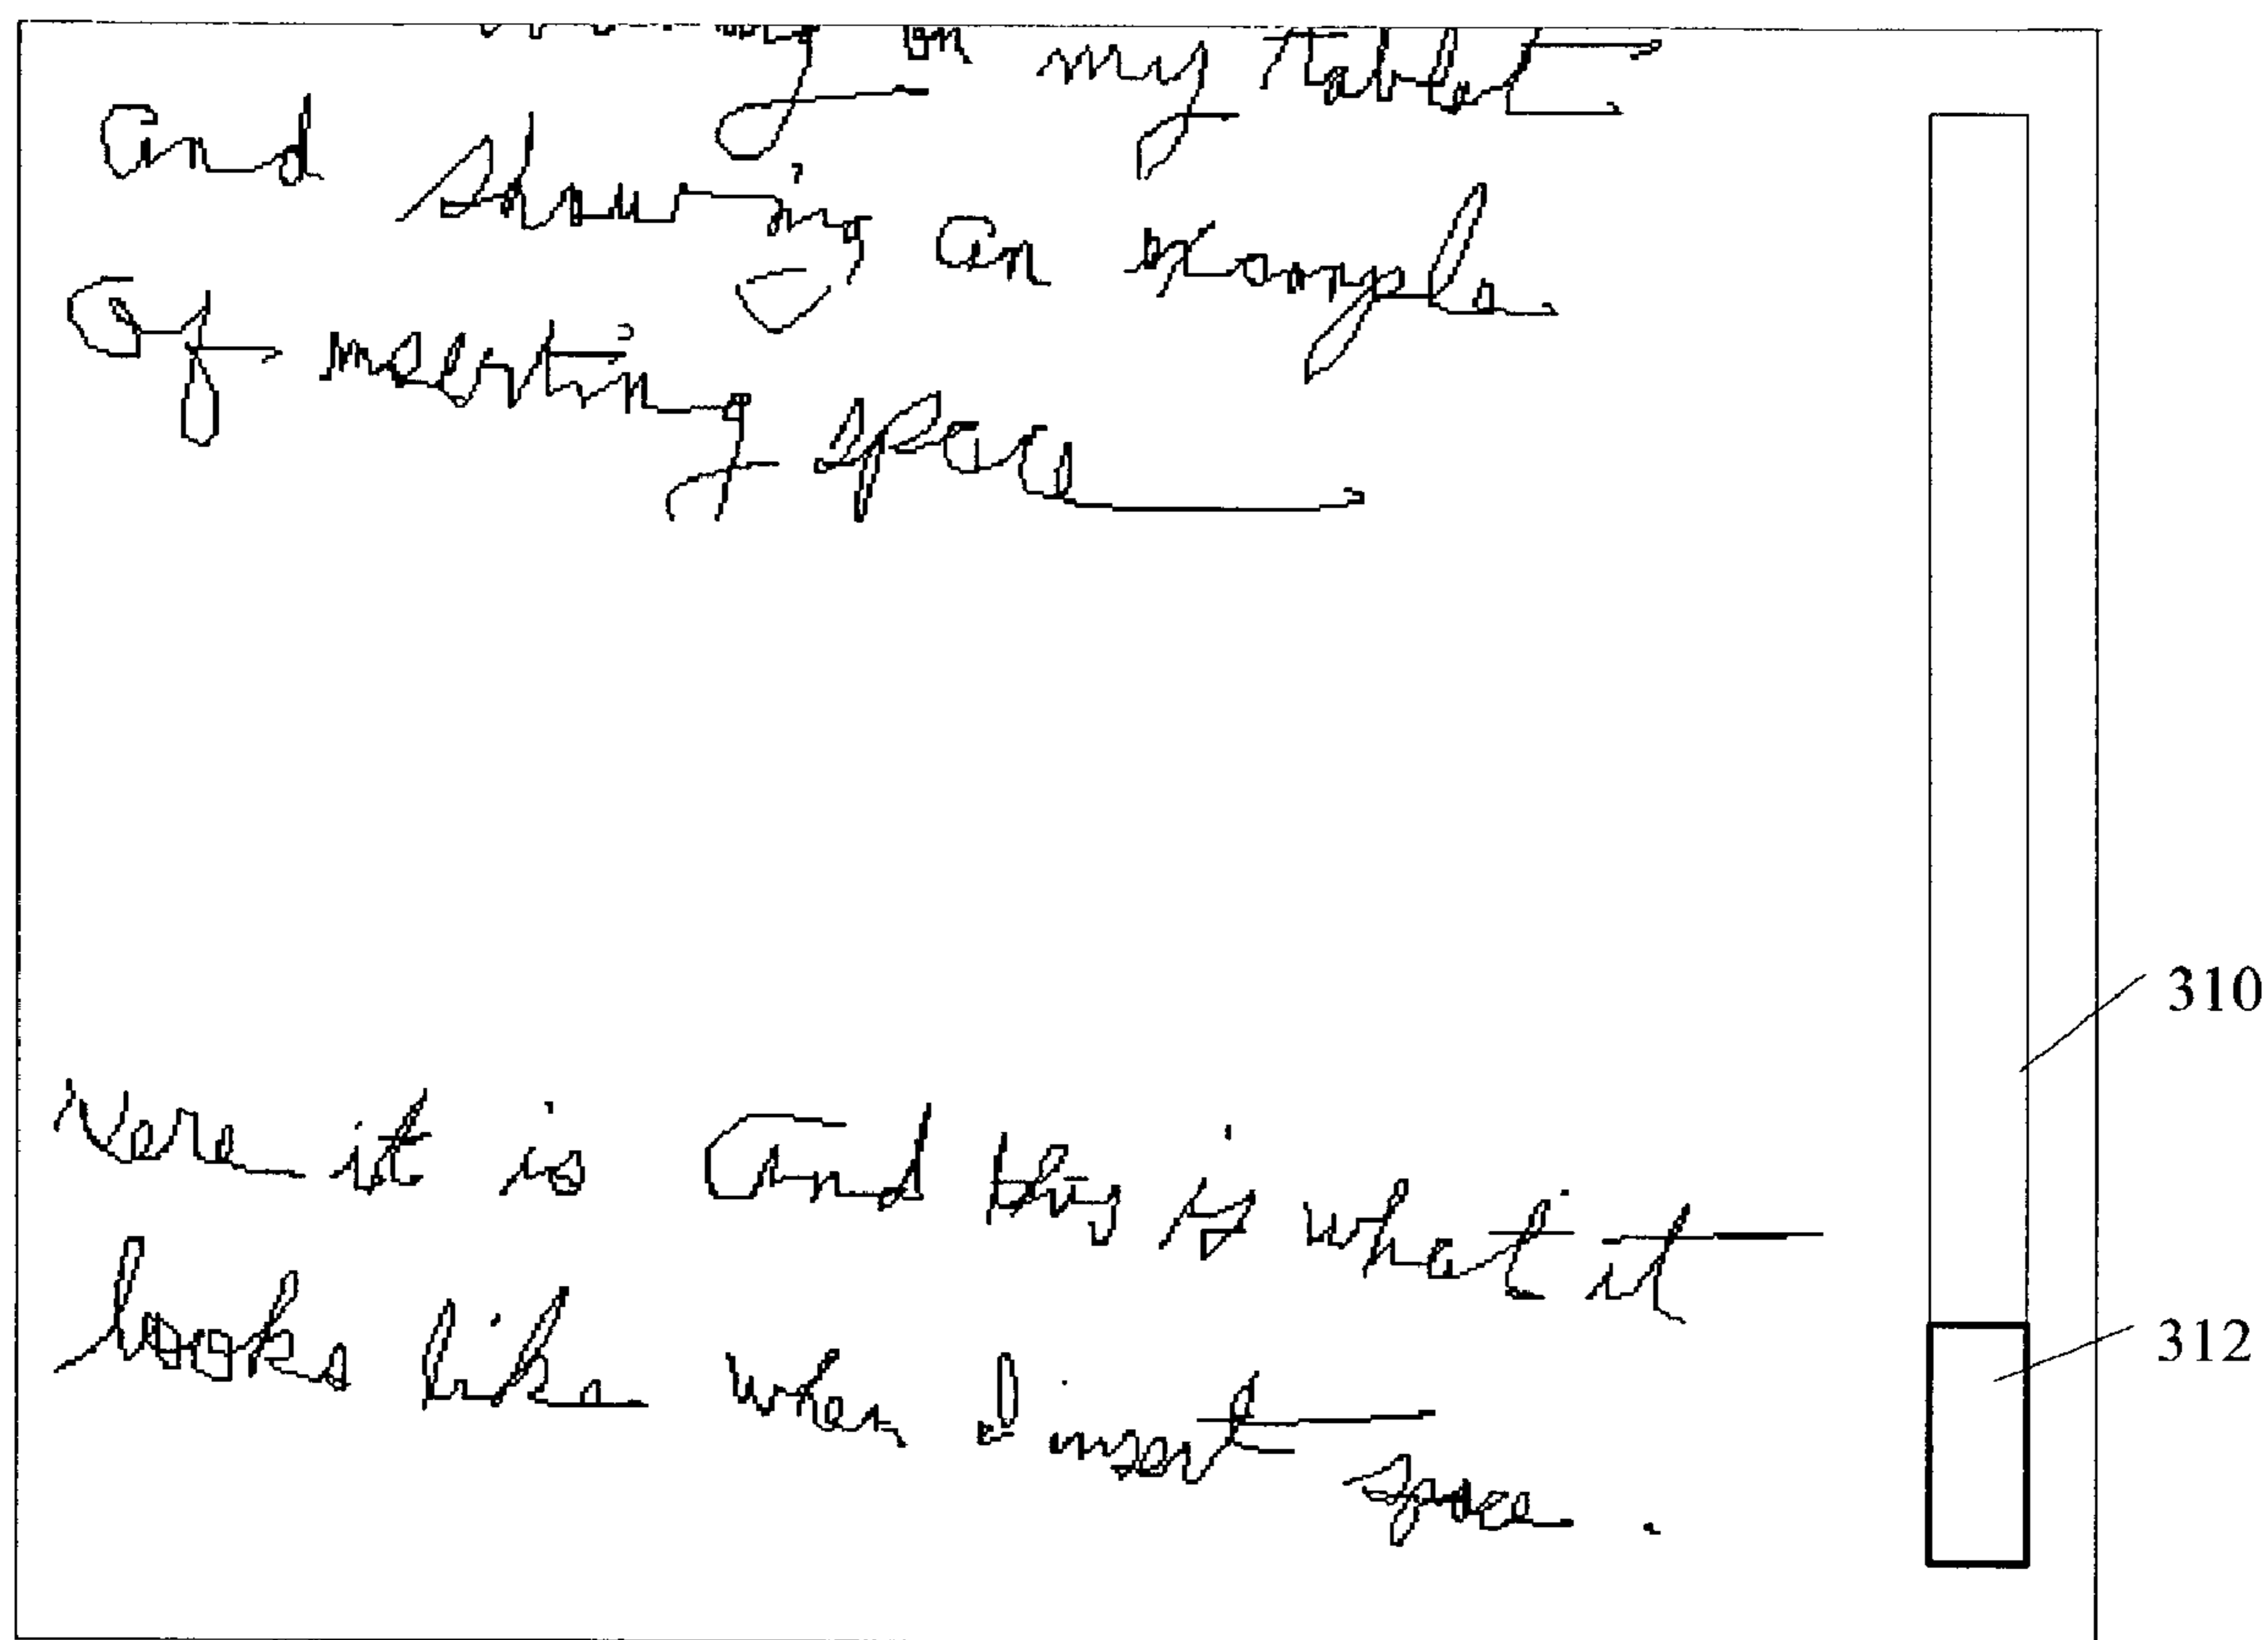 on my tablet
and showing an example
of inserting space
here it is and this is what it
looks like when I insert space.
310
312